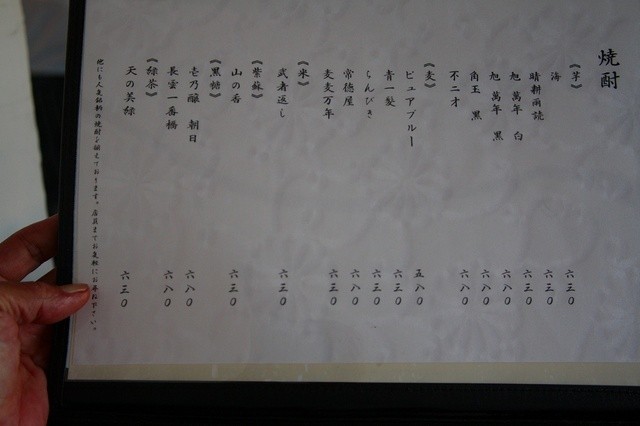 焼酎
《芋》
海 六三〇
晴耕雨読 六三〇
旭萬年 白 六三〇
旭萬年 黒 六八〇
角玉 黒 六八〇
不二才 六八〇
《麦》
ピュアブルー 五八〇
青一髪 六三〇
らんびき 六三〇
常徳屋 六八〇
麦麦万年 六三〇
《米》
武者返し 六三〇
《紫蘇》
山の香 六三〇
《黒糖》
壱乃醸 朝日 六八〇
長雲一番橋 六八〇
《緑茶》
天の美緑 六三〇
他にも人気銘柄の焼酎を揃えております。店員までお気軽にお尋ね下さい。